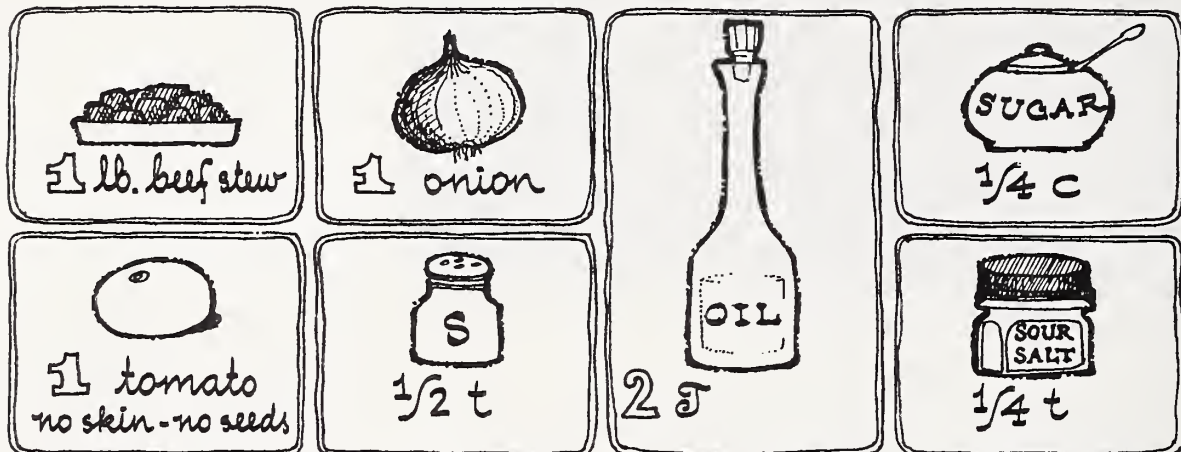 1 lb. beef stew
1 onion
OIL
2 T
SUGAR
1/4 c
1 tomato
no skin-no seeds
S
1/2 t
SOUR
SALT
1/4 t